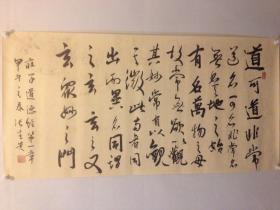 道可道非常
道名可名非常名
無名天地之始
有名萬物之母
故常無欲以觀
其妙常有欲以觀
其徼此兩者同
出而異名同謂
之玄玄之又
玄衆妙之門
老子道德經第一章
甲午之春